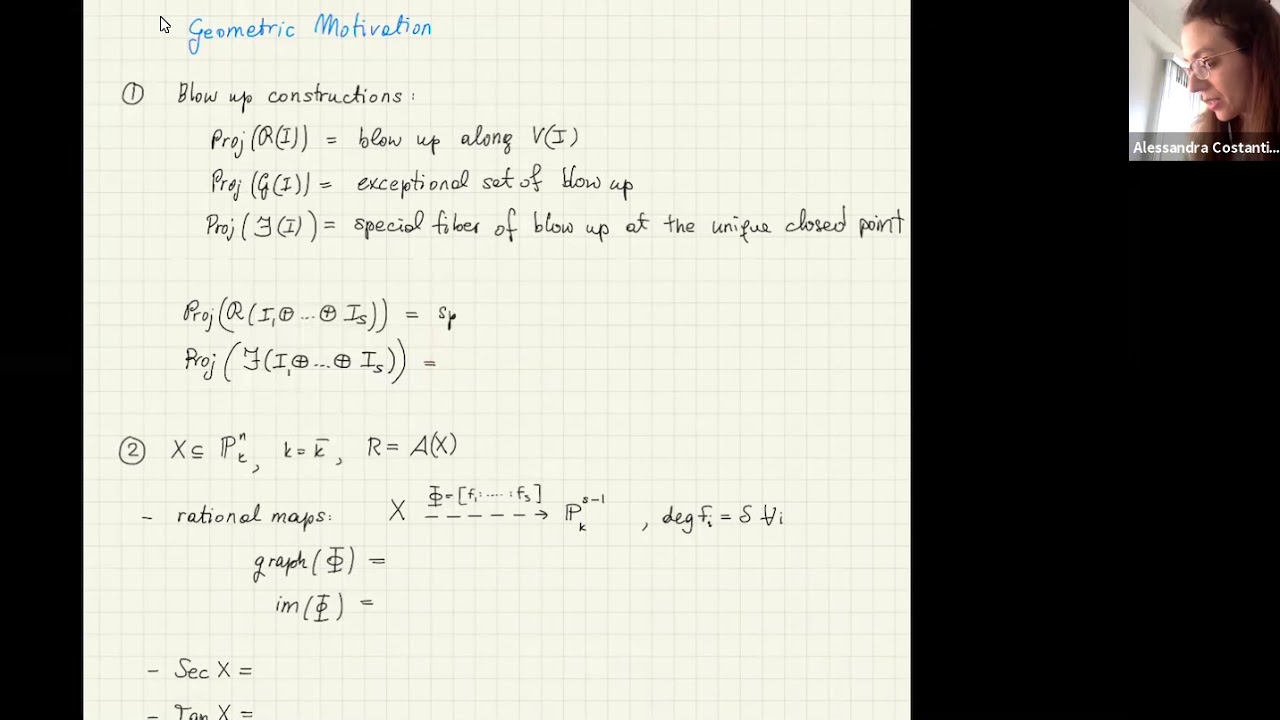 Geometric Motivation
① Blow up constructions:
Proj(R(I)) = blow up along V(I)
Proj(G(I)) = exceptional set of blow up
Proj(F(I)) = special fiber of blow up at the unique closed point
Proj(R(I₁⊕...⊕ I_s)) = sp
Proj(F(I₁⊕...⊕ I_s)) =
② X ⊆ ℙⁿ_k, k = k̄, R = A(X)
- rational maps: X Φ=[f₁:....:f_s] -----→ ℙ^{s-1}_k, deg f_i = δ ∀i
graph(Φ) =
im(Φ) =
- Sec X =
- Tan X =
Alessandra Costanti...